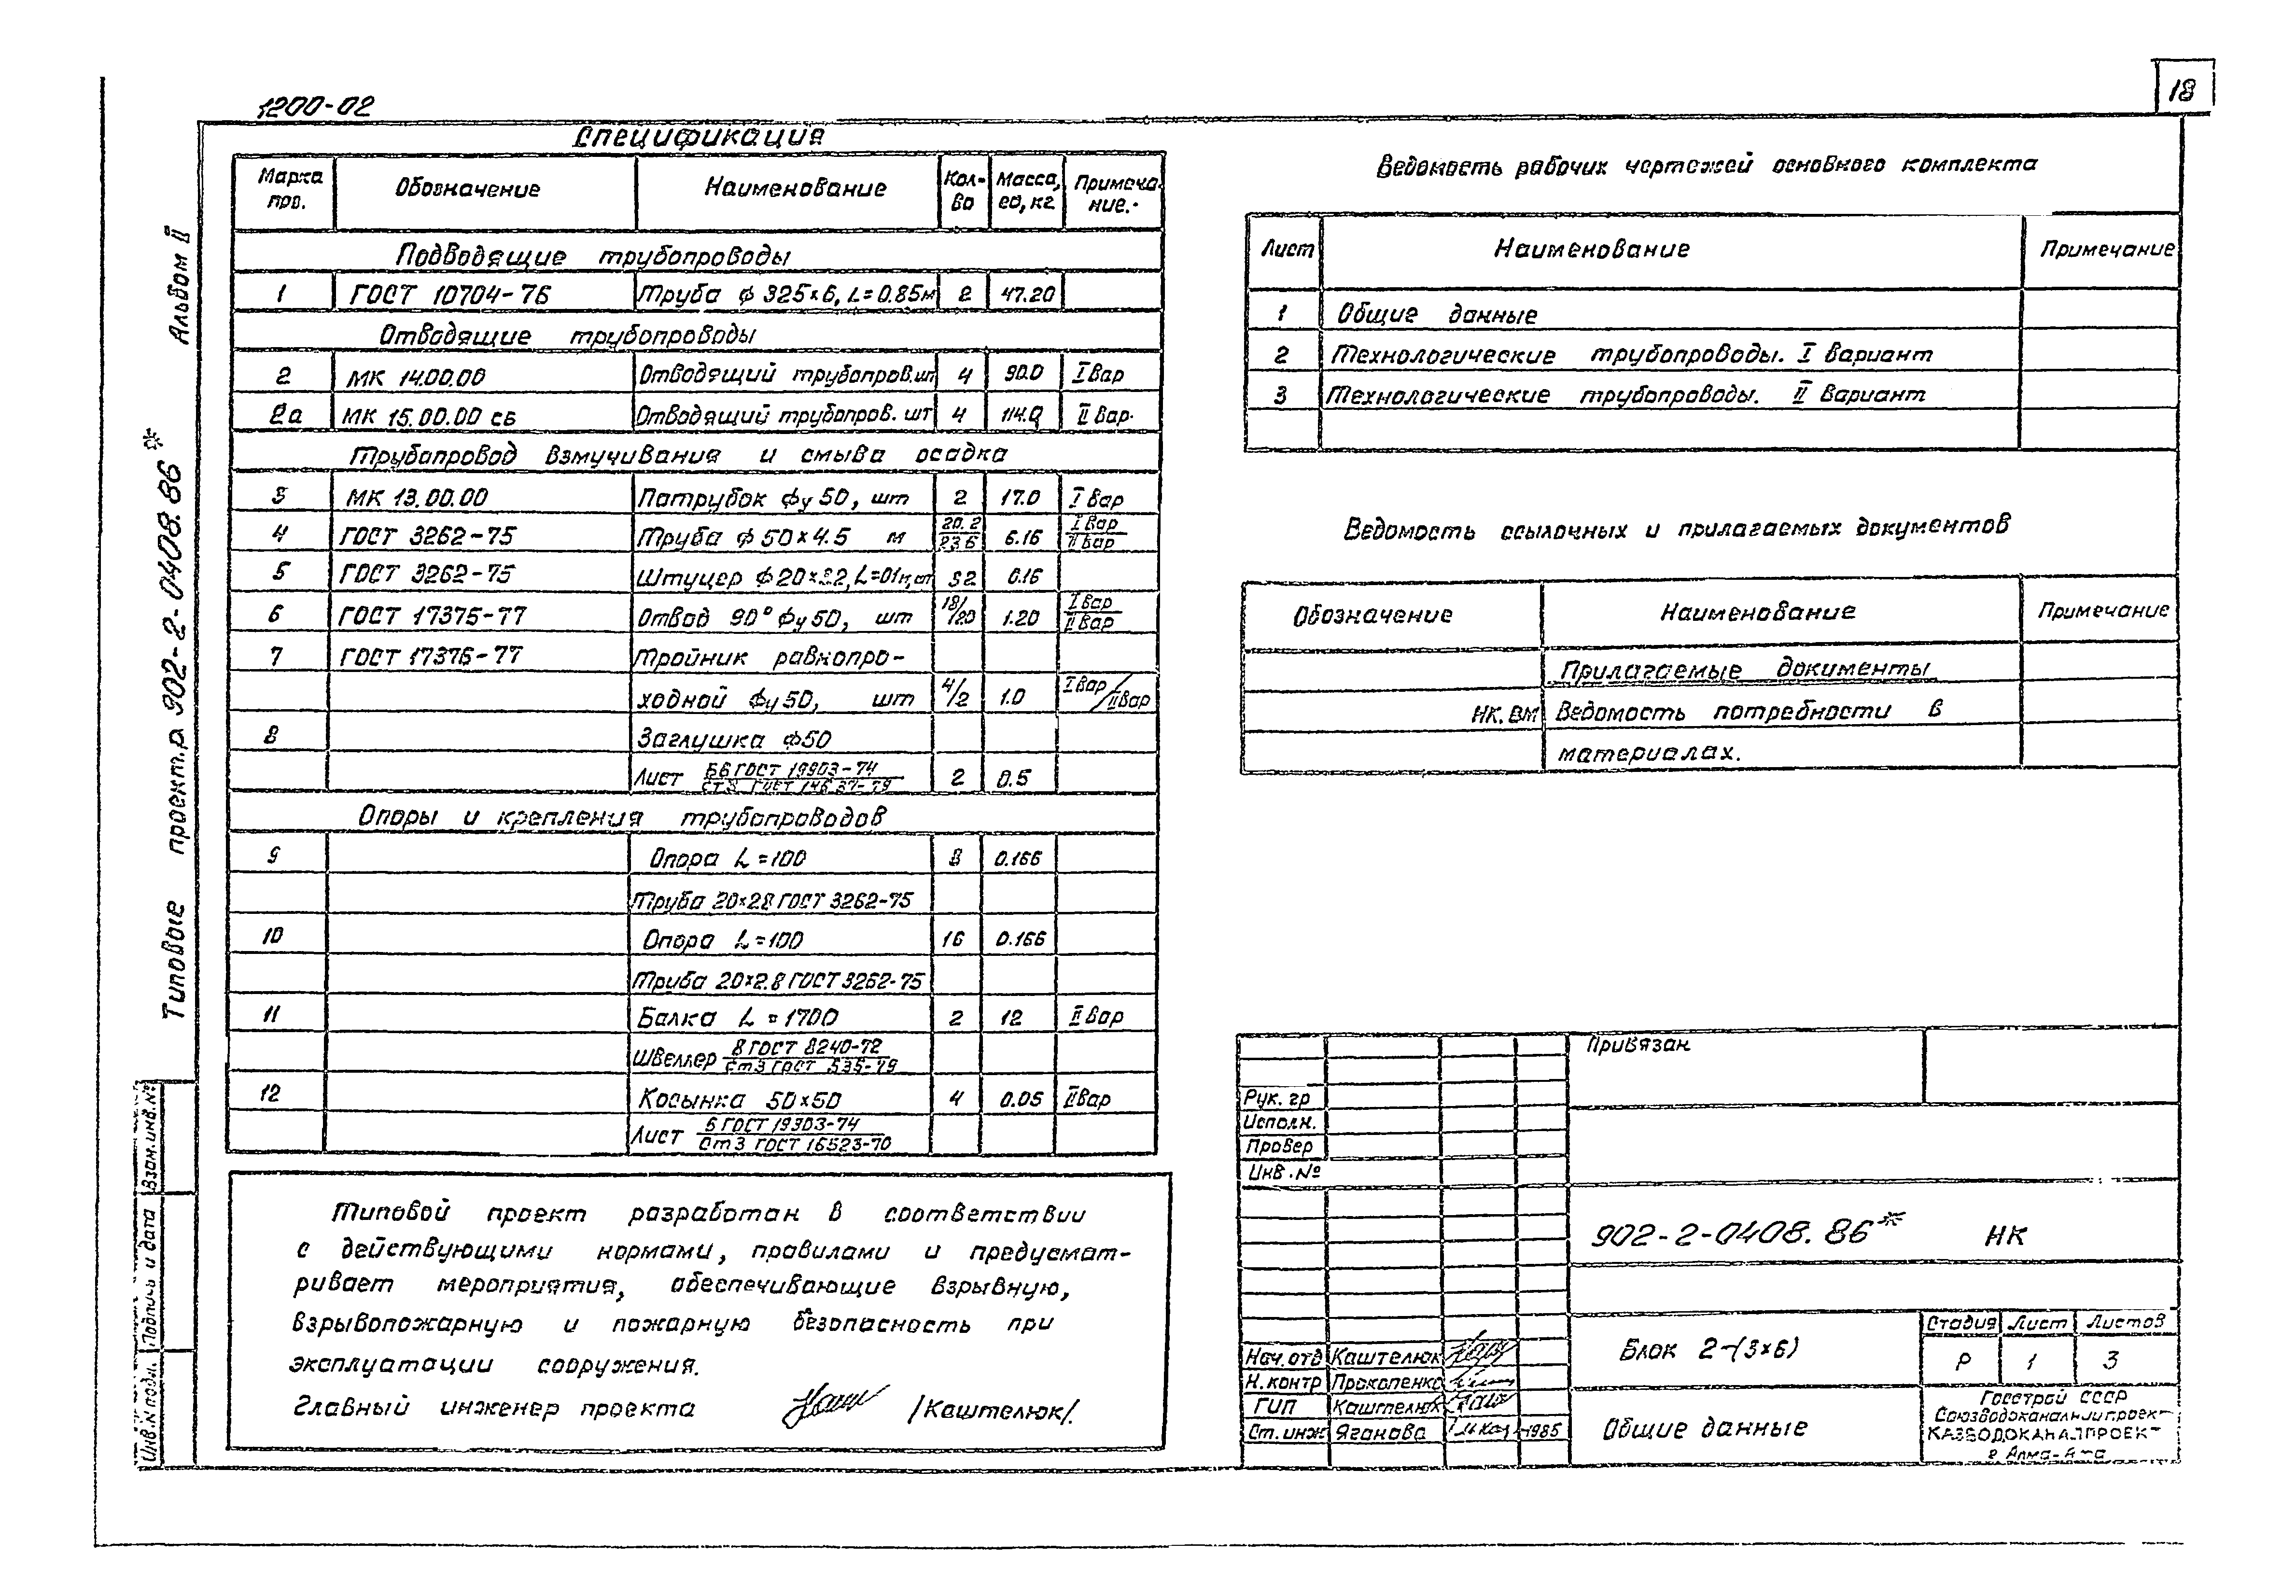 18
1200-02
Спецификация
Марка поз. Обозначение Наименование Кол-во Масса, ед, кг Примеча-ние.
Подводящие трубопроводы
1 ГОСТ 10704-76 Труба ф 325×6, L=0.85м 2 47.20
Отводящие трубопроводы
2 МК 14.00.00 Отводящий трубопров. шт 4 90.0 I вар
2а МК 15.00.00 СБ Отводящий трубопров. шт 4 114.0 II вар.
Трубопровод взмучивания и смыва осадка
3 МК 13.00.00 Патрубок фу 50, шт 2 17.0 I вар
4 ГОСТ 3262-75 Труба ф 50×4.5 м 20.2/23.6 6.16 I вар/II вар
5 ГОСТ 3262-75 Штуцер ф 20×3.2, L=01м, шт 32 0.16
6 ГОСТ 17375-77 Отвод 90° фу 50, шт 18/20 1.20 I вар/II вар
7 ГОСТ 17376-77 Тройник равнопро-
ходной фу 50, шт 4/2 1.0 I вар/II вар
8 Заглушка ф50
Лист Б6 ГОСТ 19903-74/Ст3 ГОСТ 14637-79 2 0.5
Опоры и крепления трубопроводов
9 Опора L=100 8 0.166
Труба 20×28 ГОСТ 3262-75
10 Опора L=100 16 0.166
Труба 20×2.8 ГОСТ 3262-75
11 Балка L=1700 2 12 II вар
Швеллер 8 ГОСТ 8240-72/Ст3 ГОСТ 535-79
12 Косынка 50×50 4 0.05 II вар
Лист 6 ГОСТ 19903-74/Ст3 ГОСТ 16523-70
Типовой проект разработан в соответствии
с действующими нормами, правилами и предусмат-
ривает мероприятия, обеспечивающие взрывную,
взрывопожарную и пожарную безопасность при
эксплуатации сооружения.
Главный инженер проекта /Каштелюк/.
Типовые проект.р. 902-2-0408.86* Альбом II
Инв.N подл. Подпись и дата Взам.инв.№
Ведомость рабочих чертежей основного комплекта
Лист Наименование Примечание
1 Общие данные
2 Технологические трубопроводы. I вариант
3 Технологические трубопроводы. II вариант
Ведомость ссылочных и прилагаемых документов
Обозначение Наименование Примечание
Прилагаемые документы
НК.ВМ Ведомость потребности в
материалах.
Привязан
Рук. гр
Исполн.
Провер
Инв. №
902-2-0408.86* НК
Блок 2-(3×6)
Стадия Лист Листов
Р 1 3
Нач. отд Каштелюк
Н. контр Прокопенко
ГИП Каштелюк
Ст. инж Яганова 1985
Общие данные
Госстрой СССР
Союзводоканалниипроект
КАЗВОДОКАНАЛПРОЕКТ
г. Алма-Ата